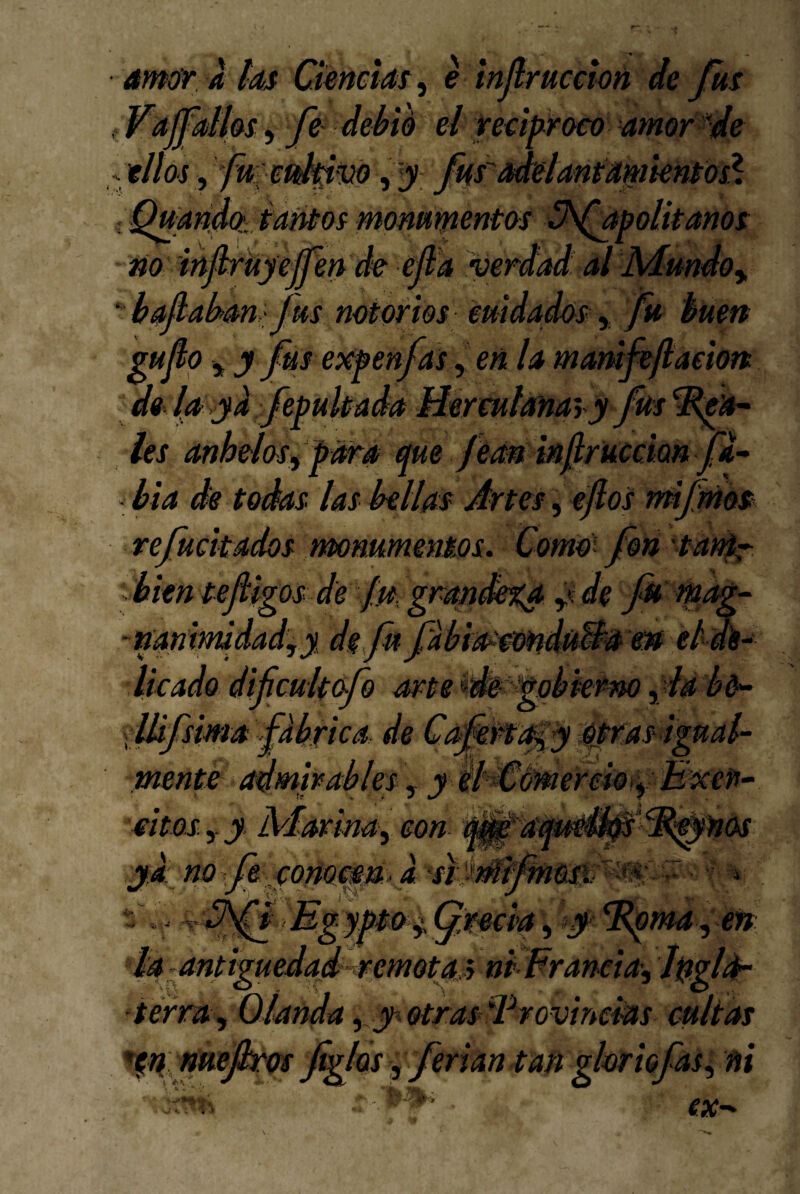 amor à las Ciencias, è inſtruccion de ſus
Vaſſallos, ſe debiò el reciproco amor de
ellos, ſu cultivo, y ſus adelantamientos:
Quando tantos monumentos Napolitanos
no inſtruyeſſen de eſta verdad al Mundo,
baſtaban ſus notorios cuidados, ſu buen
guſto, y ſus expenſas, en la manifeſtacion
de la yà ſepultada Herculana; y ſus Rea-
les anhelos, para que ſean inſtruccion ſà-
bia de todas las bellas Artes, eſtos miſmos
reſucitados monumentos. Como ſon tam-
bien teſtigos de ſu grandeza, de ſu mag-
nanimidad, y de ſu ſàbia conducta en el de-
licado dificultoſo arte de gobierno, la be-
lliſsima fàbrica de Caſerta, y otras igual-
mente admirables, y el Comercio, Exer-
citos, y Marina, con que aquellos Reynos
yà no ſe conocen à sì miſmos.
Ni Egypto, Grecia, y Roma, en
la antiguedad remota; ni Francia, Ingla-
terra, Olanda, y otras Provincias cultas
en nueſtros ſiglos, ſerian tan glorioſas, ni
ex-